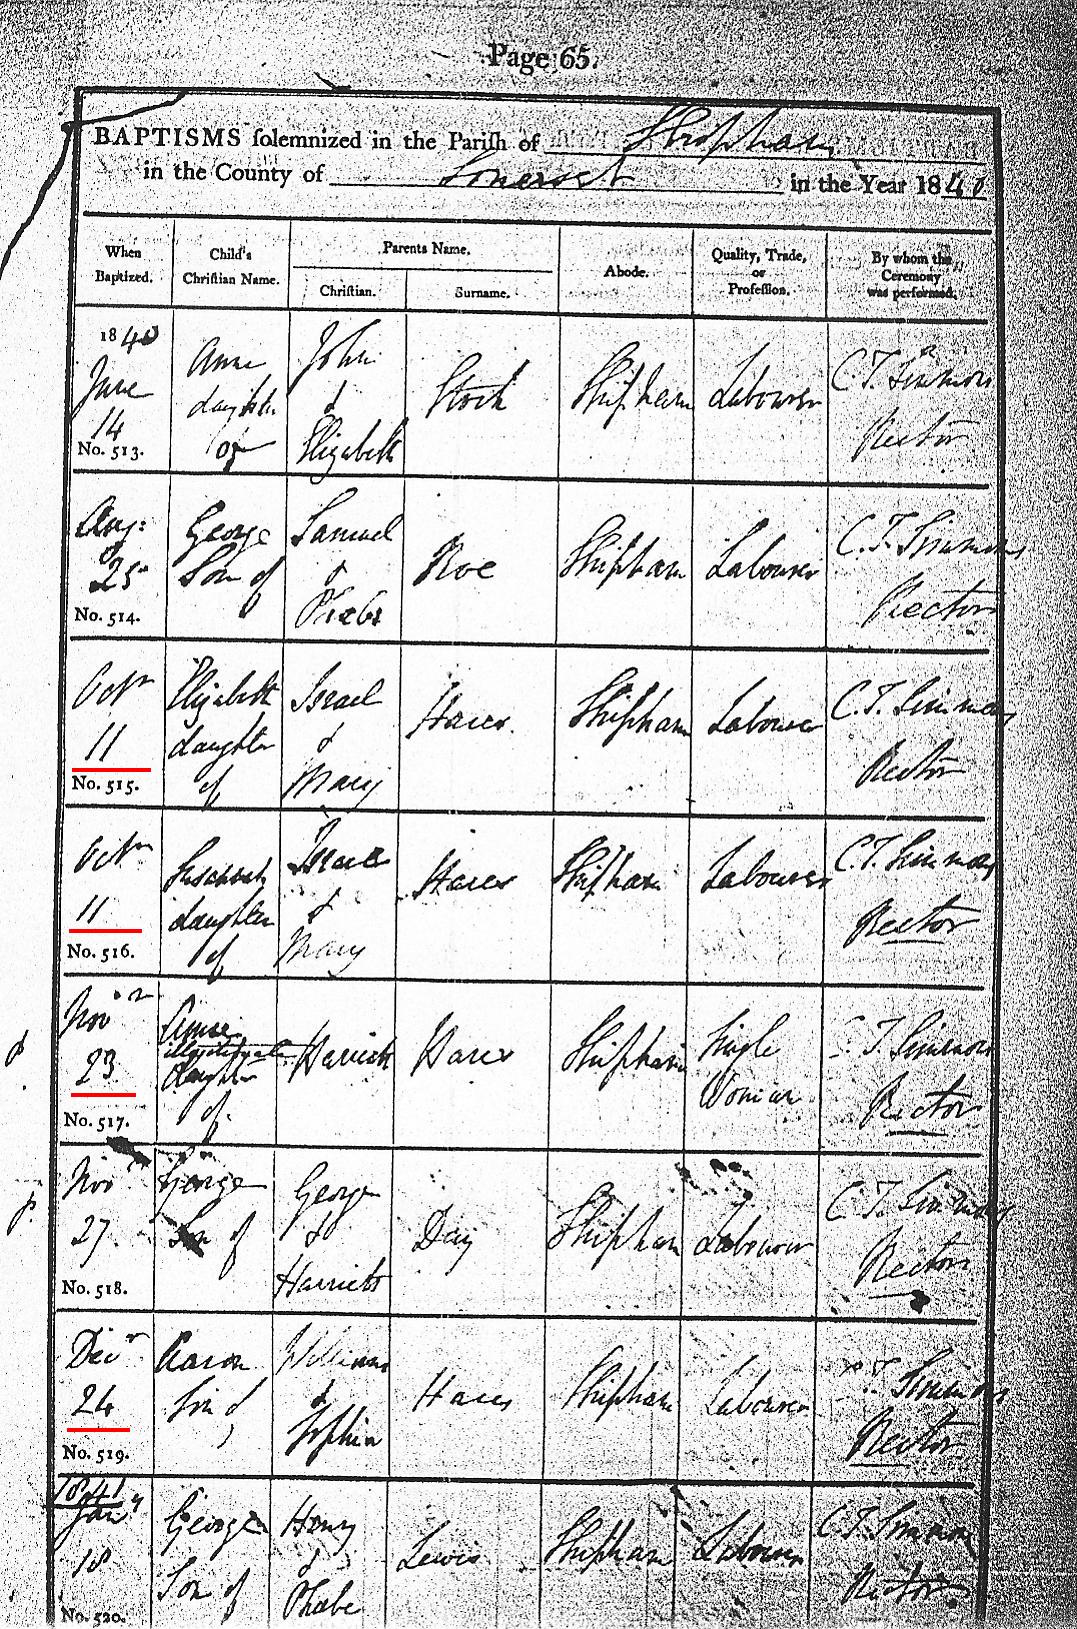 Page 65.
BAPTISMS solemnized in the Parish of Shipham
in the County of Somerset in the Year 1840
When Baptized.
Child's Christian Name.
Parents Name.
Christian.
Surname.
Abode.
Quality, Trade, or Profession.
By whom the Ceremony was performed.
1840
June
14
No. 513.
Anne
daughter
of
John
&
Elizabeth
Stock
Shipham
Labourer
C. T. Simmons
Rector
Aug:
25
No. 514.
George
Son of
Samuel
&
Phebe
Roe
Shipham
Labourer
C. T. Simmons
Rector
Octr
11
No. 515.
Elizabeth
daughter
of
Israel
&
Mary
Hares
Shipham
Labourer
C. T. Simmons
Rector
Octr
11
No. 516.
daughter
of
Israel
&
Mary
Hares
Shipham
Labourer
C. T. Simmons
Rector
Novr
23
No. 517.
illegitimate
daughter
of
Harriett
Hares
Shipham
Single
Woman
C. T. Simmons
Rector
Novr
27.
No. 518.
George
Son of
George
&
Harriett
Day
Shipham
Labourer
C. T. Simmons
Rector
Decr
24
No. 519.
Aaron
Son of
William
&
Sophia
Hares
Shipham
Labourer
C. T. Simmons
Rector
1841
Jany
18
No. 520.
George
Son of
Henry
&
Phebe
Lewis
Shipham
Labourer
C. T. Simmons
Rector